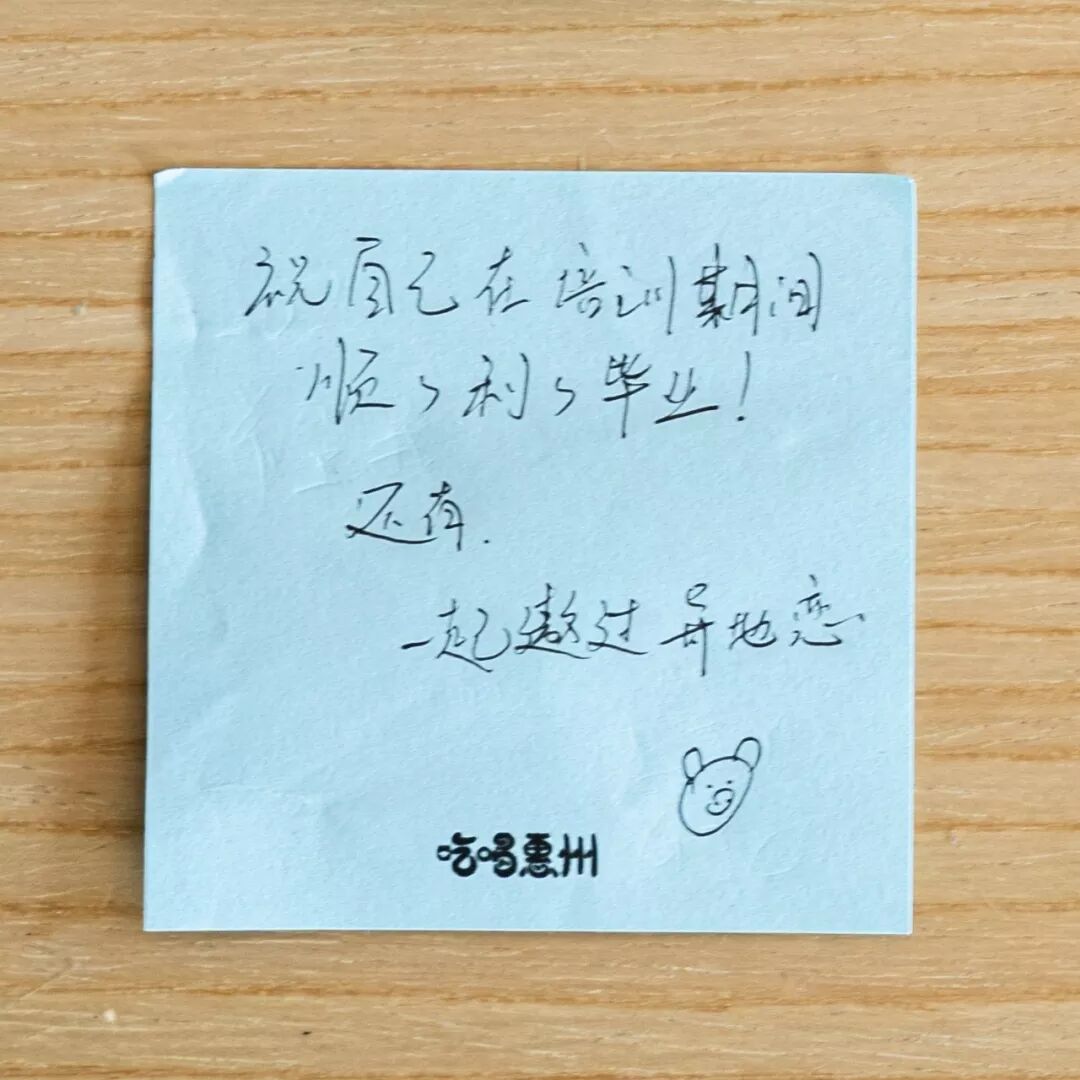 祝自己在培训期间
顺々利々毕业！
还有.
一起遨过异地恋
吃喝惠州